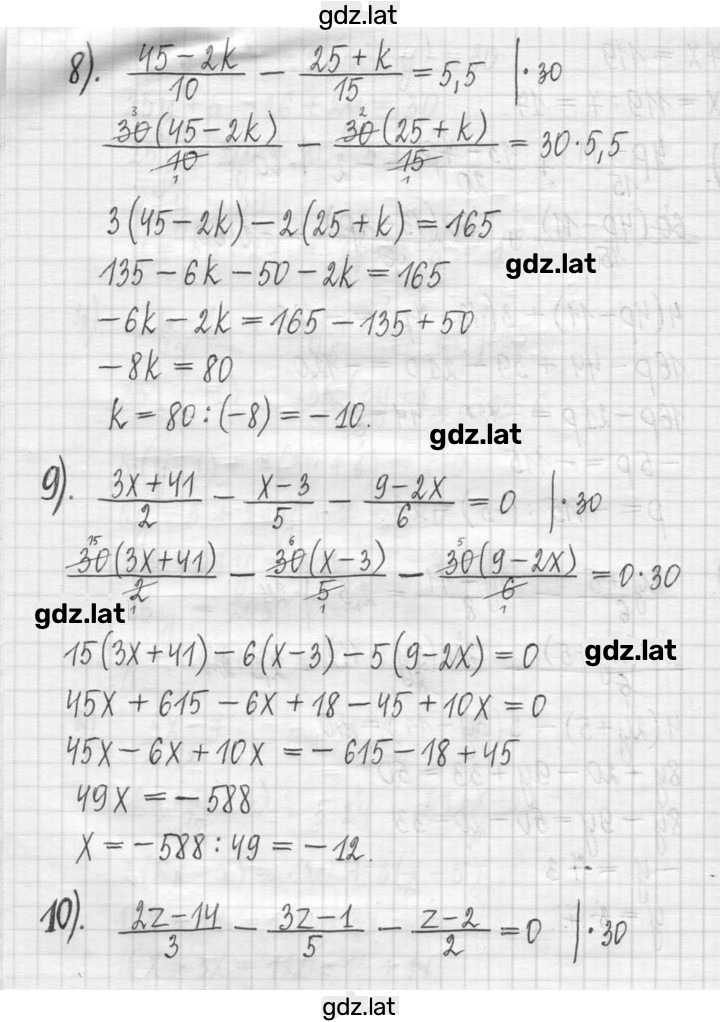 gdz.lat
8). (45-2k)/10 - (25+k)/15 = 5,5 |·30
30(45-2k)/10 - 30(25+k)/15 = 30·5,5
3(45-2k)-2(25+k)=165
135-6k-50-2k=165
gdz.lat
-6k-2k=165-135+50
-8k=80
k=80:(-8)=-10.
gdz.lat
9). (3x+41)/2 - (x-3)/5 - (9-2x)/6 = 0 |·30
30(3x+41)/2 - 30(x-3)/5 - 30(9-2x)/6 = 0·30
gdz.lat
15(3x+41)-6(x-3)-5(9-2x)=0
gdz.lat
45x+615-6x+18-45+10x=0
45x-6x+10x=-615-18+45
49x=-588
x=-588:49=-12.
10). (2z-14)/3 - (3z-1)/5 - (z-2)/2 = 0 |·30
gdz.lat